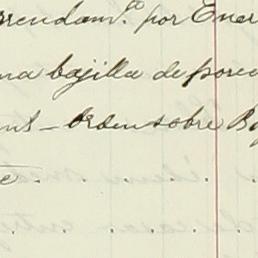 arrendamto. por Ener
na bajilla de porce
ent - Orden sobre Bo
te